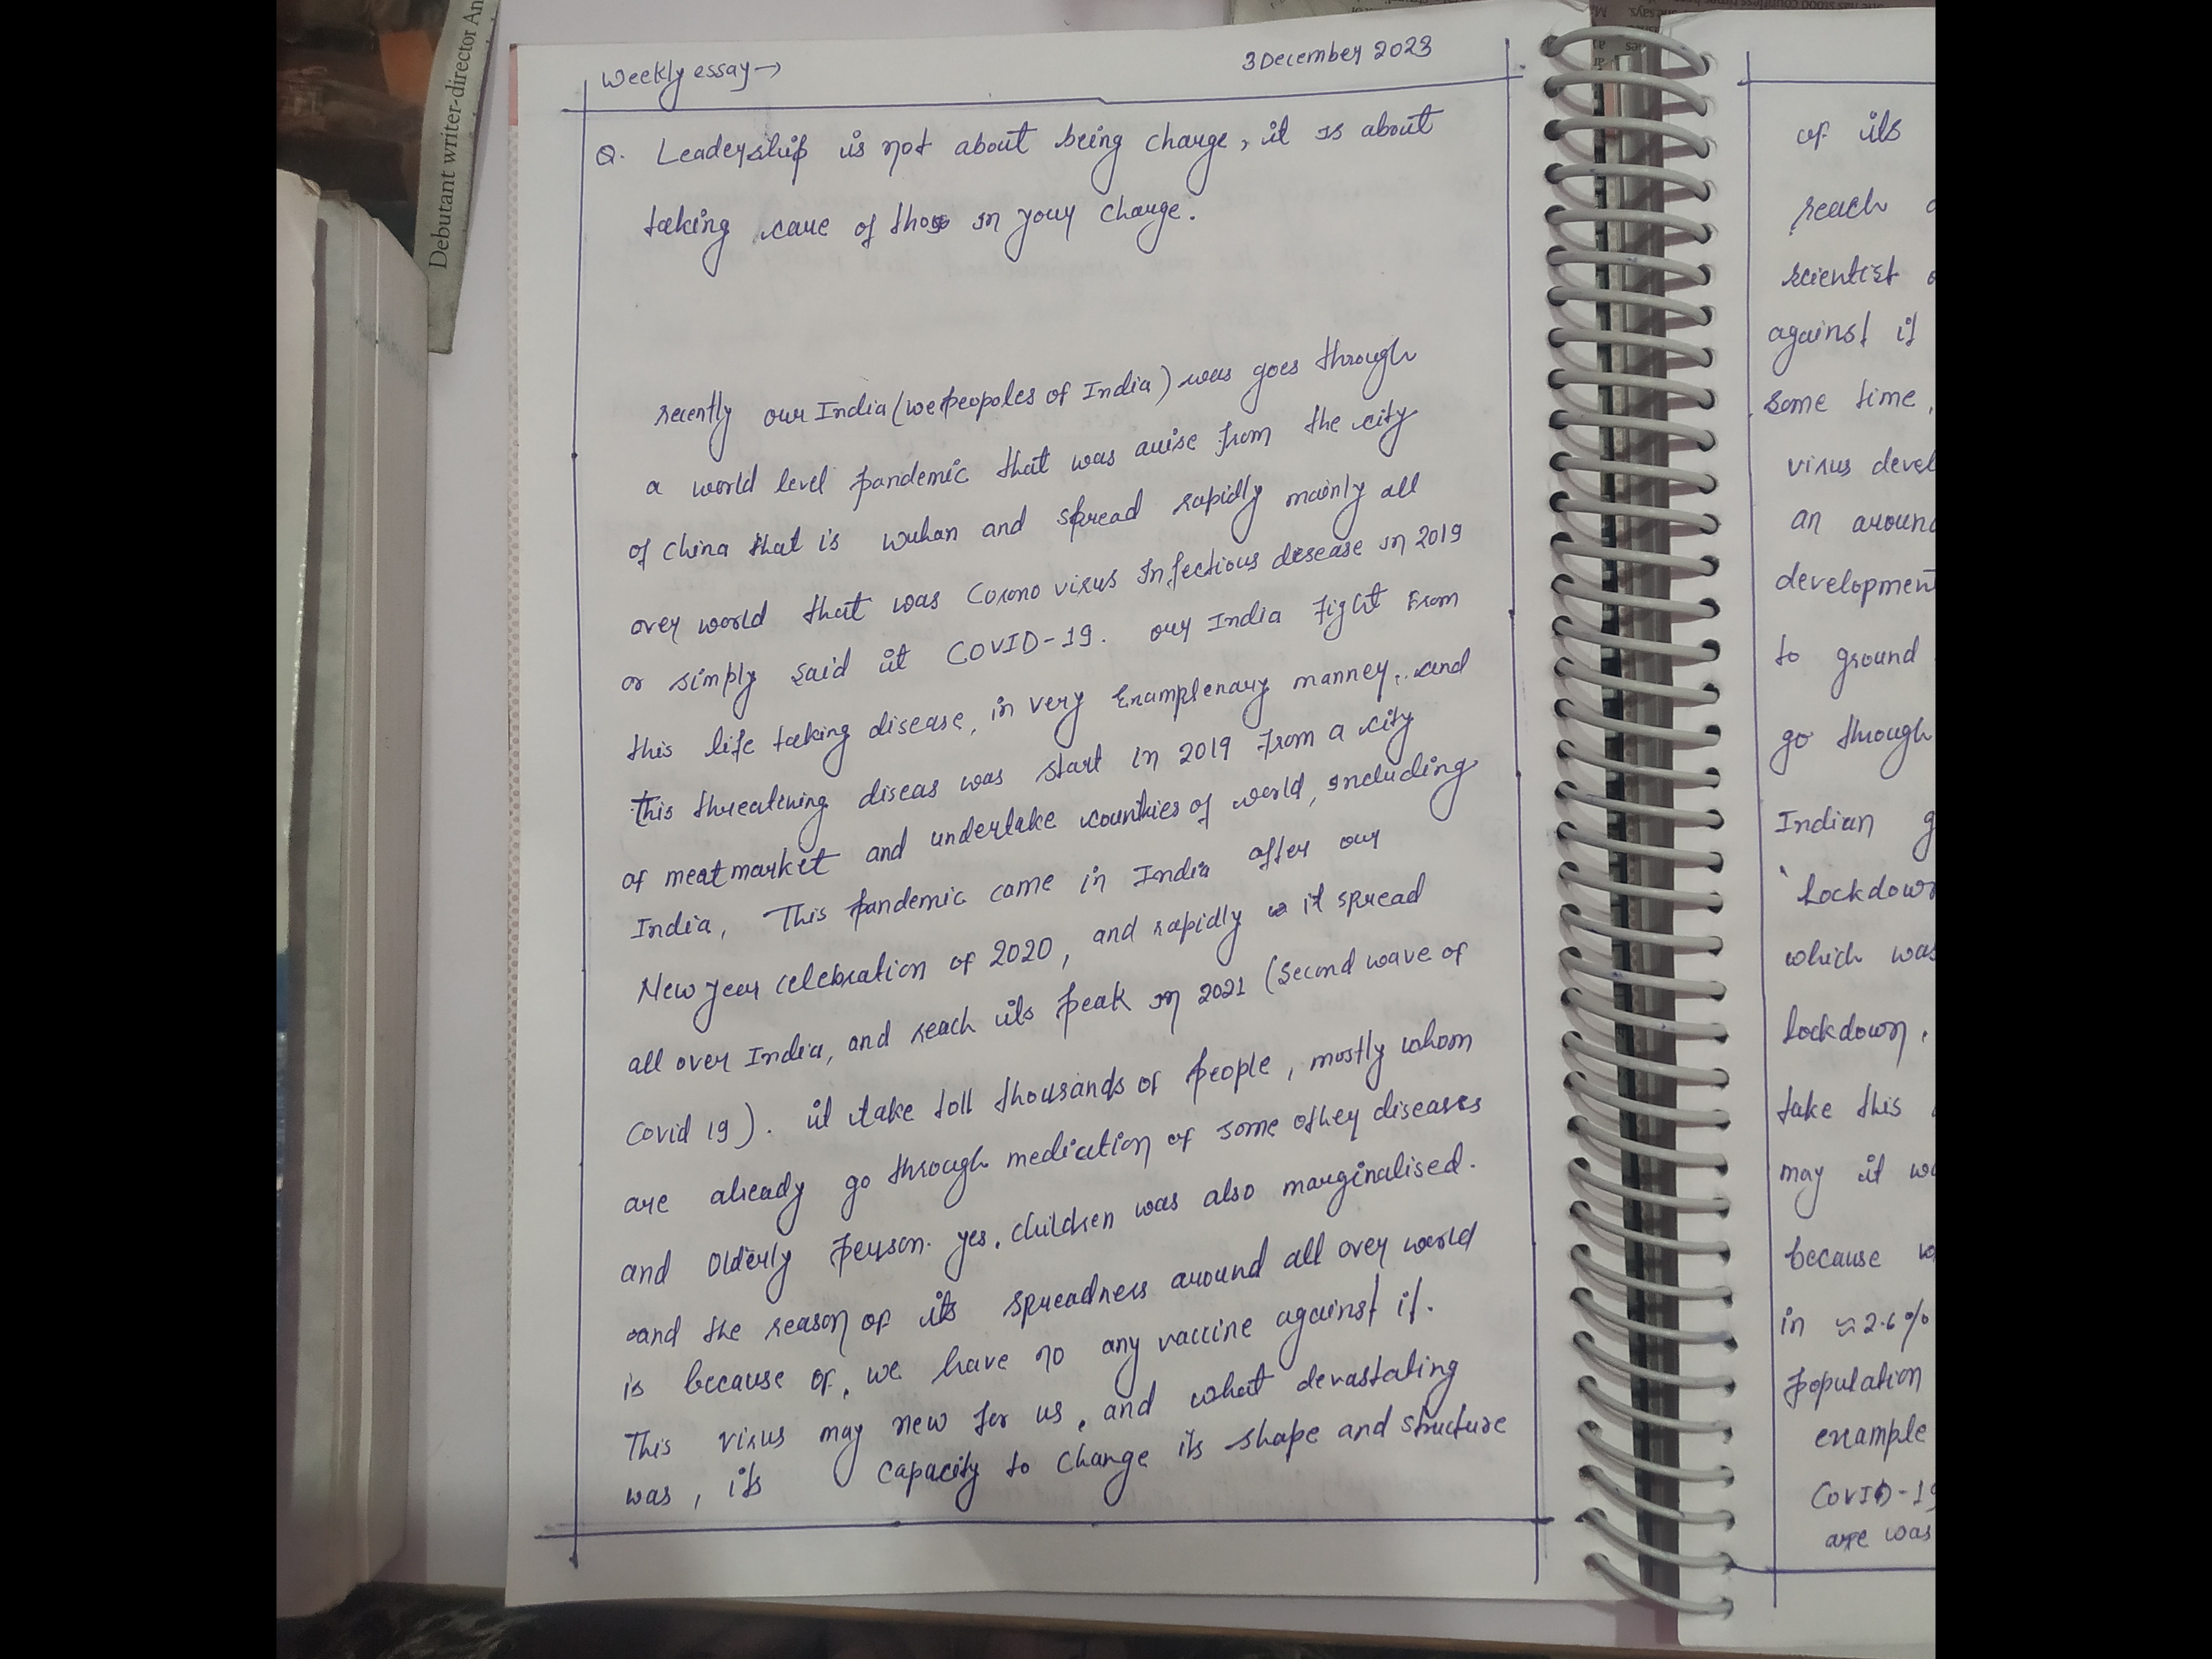 Debutant writer-director An
Weekly essay →
3 December 2023
Q. Leadership is not about being charge, it is about
taking care of those in your charge.
recently our India (we peopoles of India) was goes through
a world level pandemic that was arise from the city
of China that is wuhan and spread rapidly mainly all
over world that was Corono virus Infectious disease in 2019
or simply said it COVID-19. our India Fight From
this life taking disease, in very Examplenary manner, and
This threatining diseas was start in 2019 from a city
of meat market and undertake countries of world, including
India, This pandemic came in India after our
New year celebration of 2020, and rapidly it spread
all over India, and reach its peak in 2021 (Second wave of
Covid 19). it take toll thousands of people, mostly whom
are already go through medication of some other diseases
and olderly person. yes, children was also marginalised.
and the reason of its spreadness around all over world
is because of, we have no any vaccine against it.
This virus may new for us, and what devastating
was, its capacity to change its shape and structure
of its
reach
scientist
against it
some time,
virus devel
an around
development
to ground
go through
Indian g
'Lockdown
which was
lockdown,
take this
may it
because
in ≈2.6%
population
example
COVID-19
are was